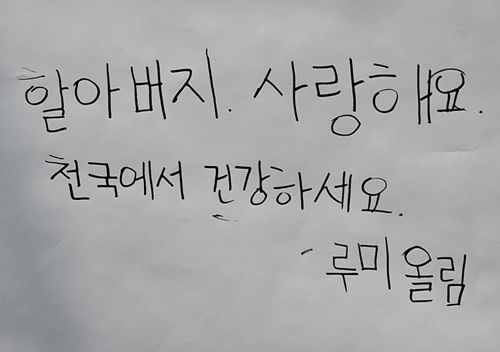 할아버지. 사랑해요.
천국에서 건강하세요.
- 루미 올림